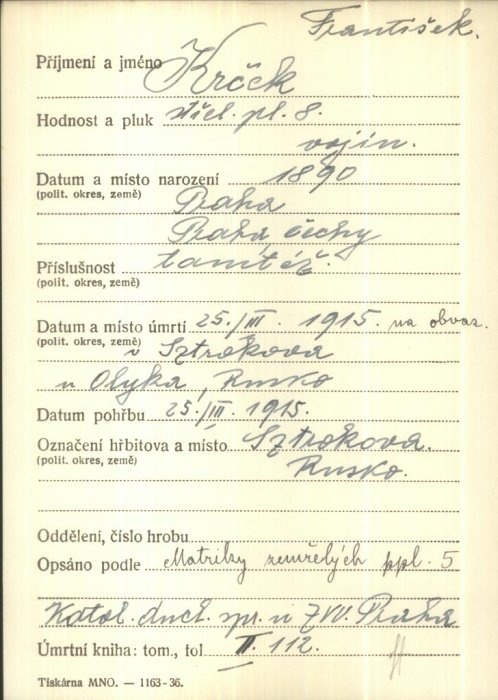 František.
Příjmení a jméno Krček
Hodnost a pluk střel. pl. 8.
vojín.
Datum a místo narození 1890
(polit. okres, země) Praha
Praha, Čechy
Příslušnost tamtéž.
(polit. okres, země)
Datum a místo úmrtí 25./III. 1915. na obvaz.
(polit. okres, země) v Sztrokova
u Olyka, Rusko
Datum pohřbu 25./III. 1915.
Označení hřbitova a místo Sztrokova.
(polit. okres, země) Rusko.
Oddělení, číslo hrobu
Opsáno podle Matriky zemřelých ppl. 5
Katol. duch. spr. u ZVV. Praha
Úmrtní kniha: tom., fol II. 112.
Tiskárna MNO. — 1163-36.